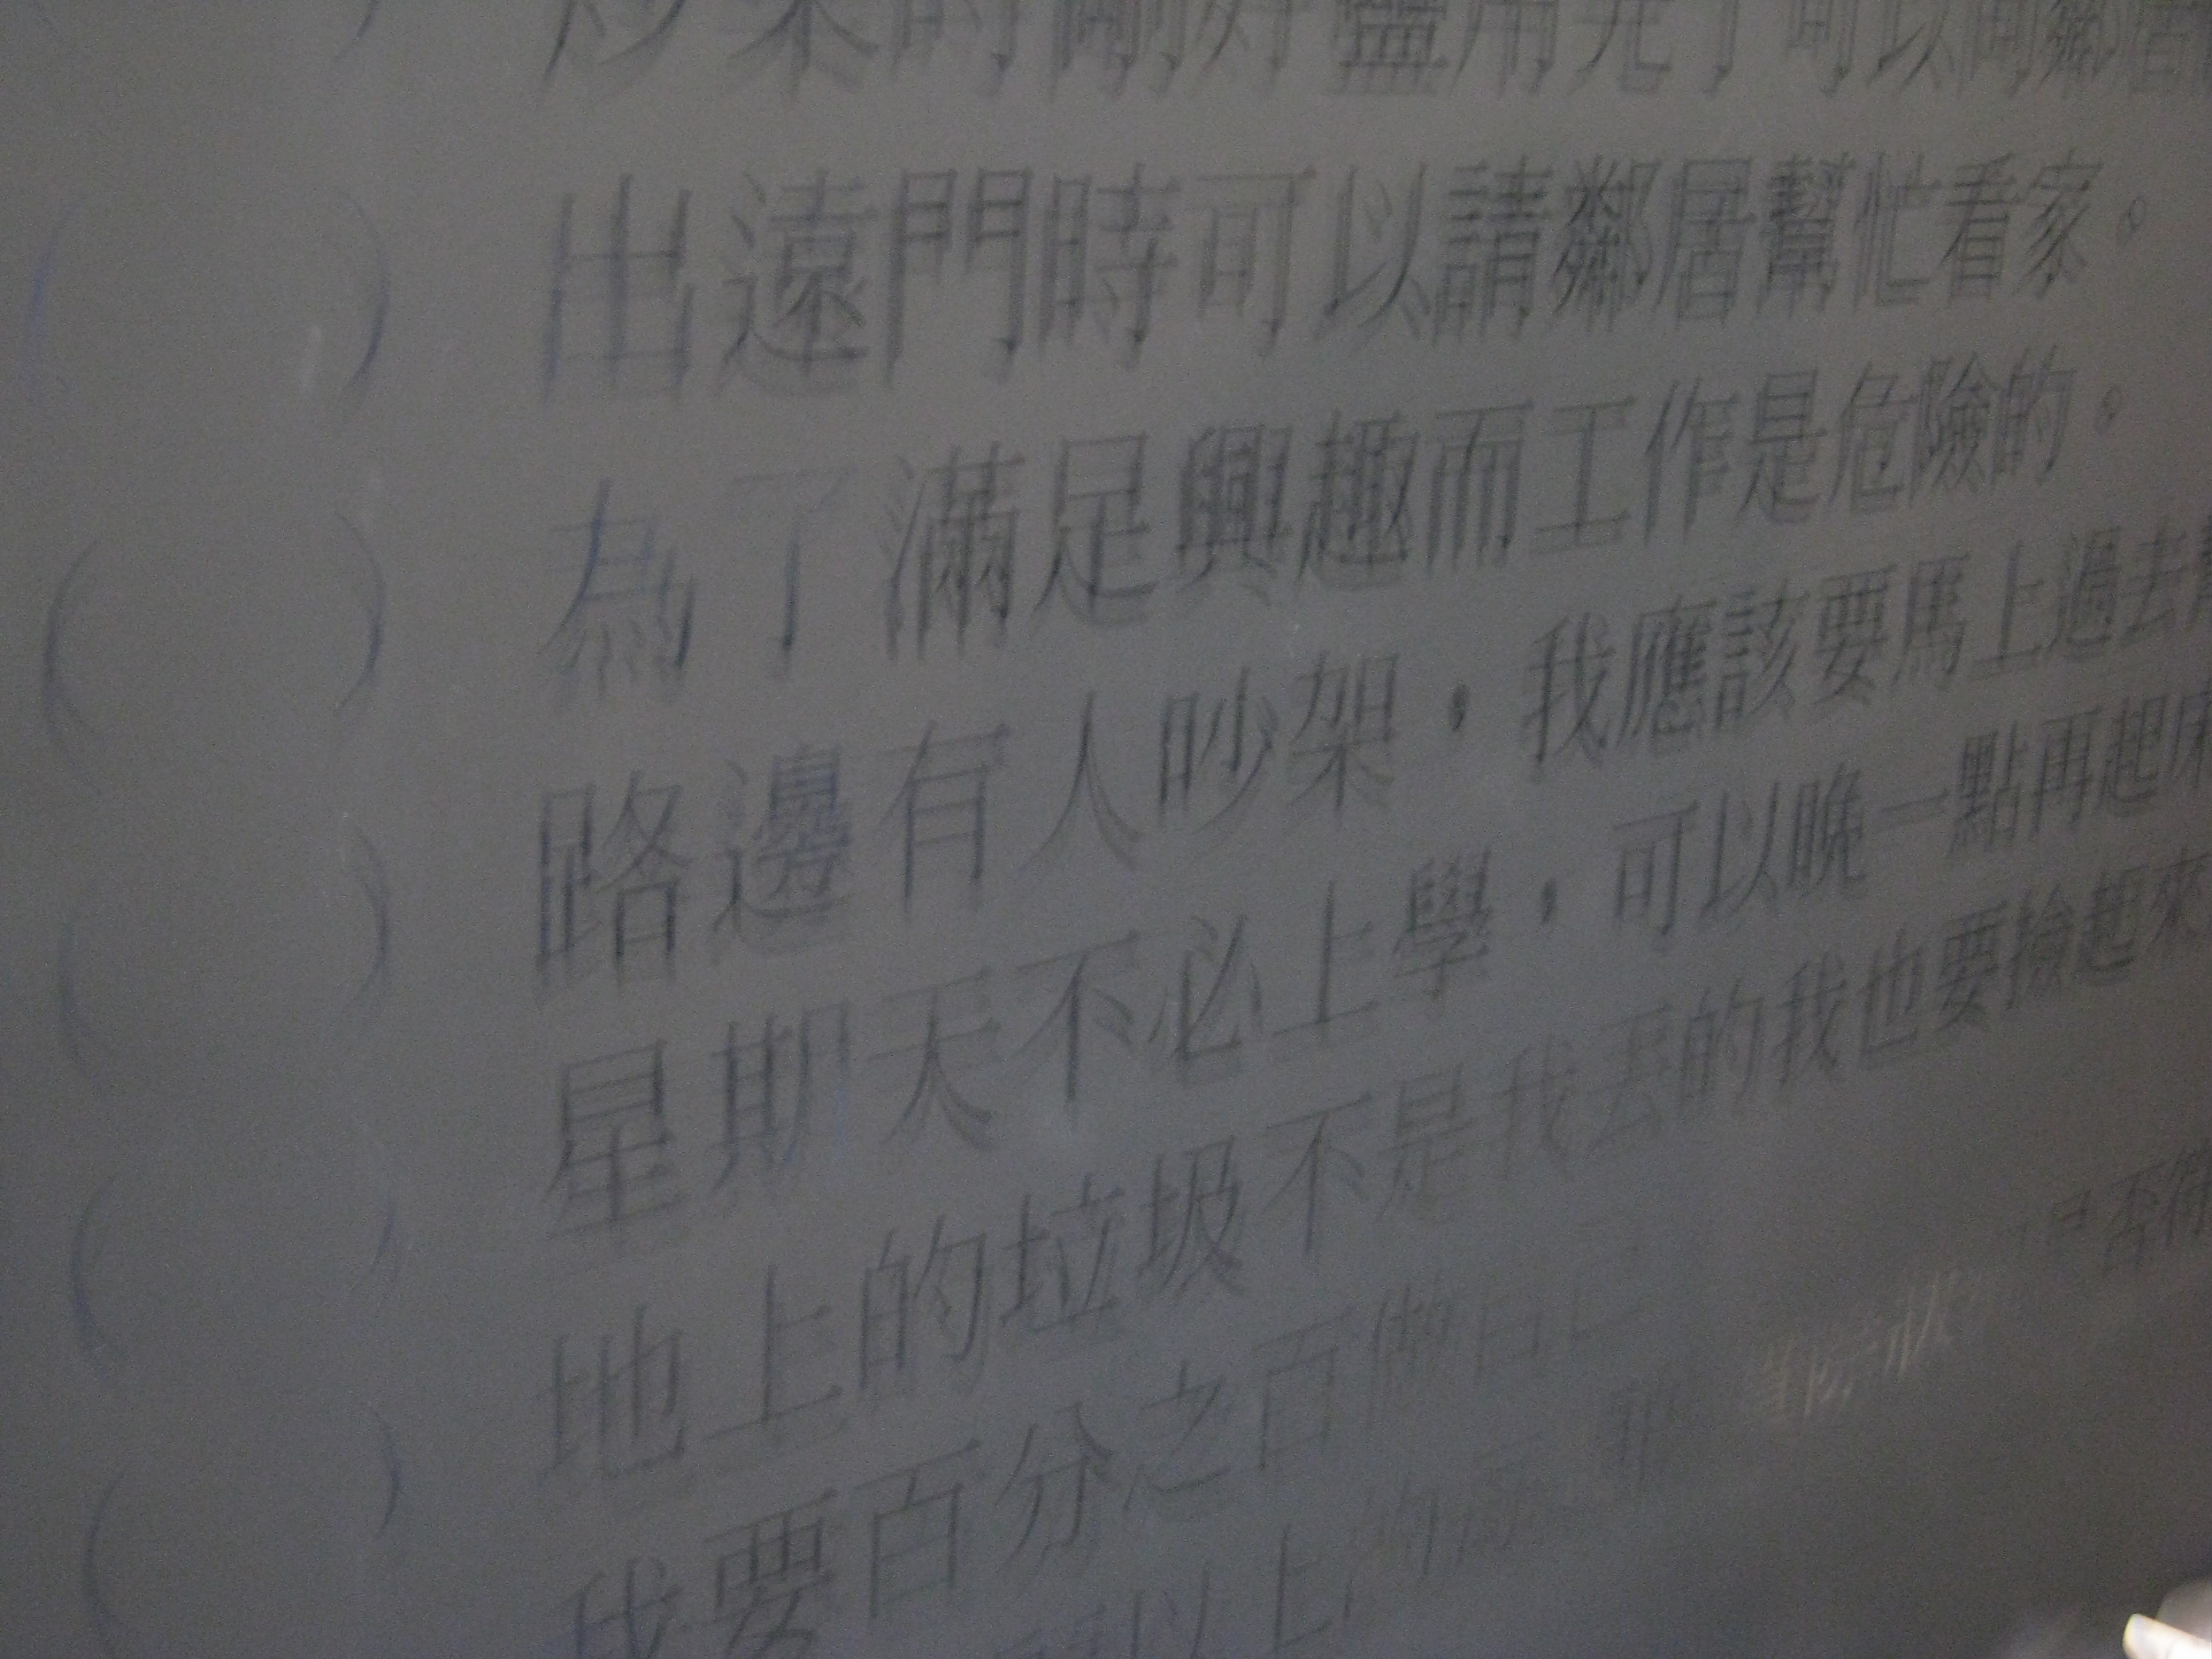 炒菜時剛好鹽用完了可以向鄰居
( ) 出遠門時可以請鄰居幫忙看家。
( ) 為了滿足興趣而工作是危險的。
( ) 路邊有人吵架，我應該要馬上過去
( ) 星期天不必上學，可以晚一點再起床
( ) 地上的垃圾不是我丟的我也要撿起來
我要百分之百
以上